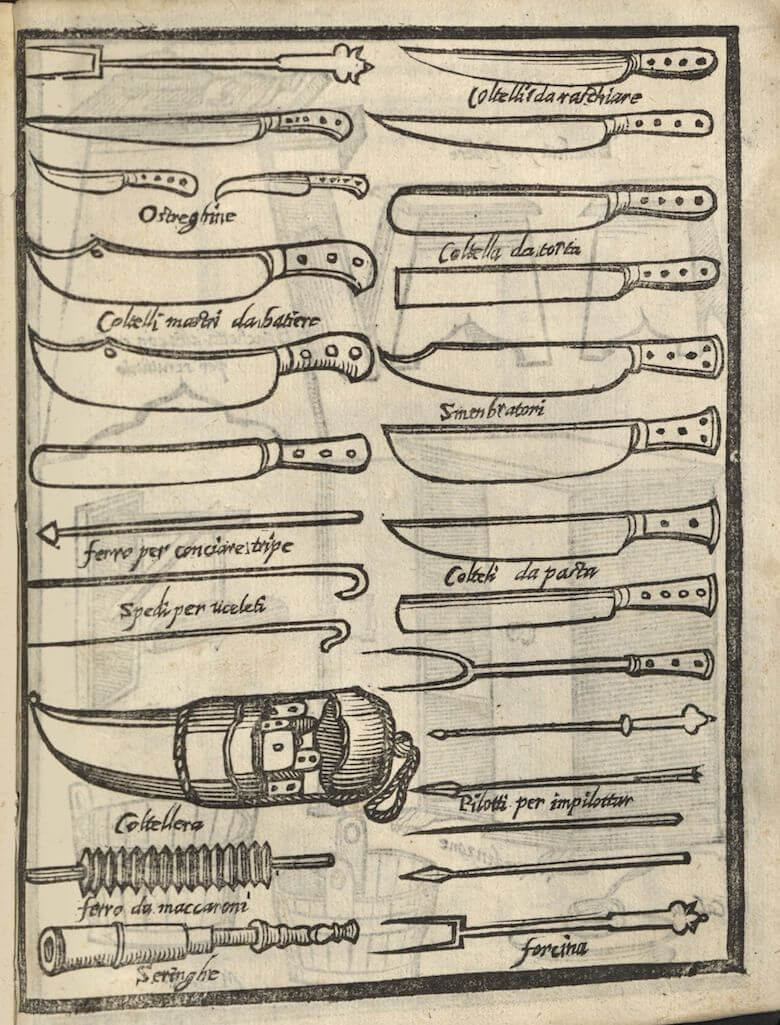 Coltelli da raschiare
Ostreghine
Coltella da torta
Coltelli mastri da batere
Smenbratori
ferro per conciare tripe
Colteli da pasta
Spedi per uceleti
Pilotti per impilottar
Coltellera
ferro da maccaroni
forcina
Seringhe